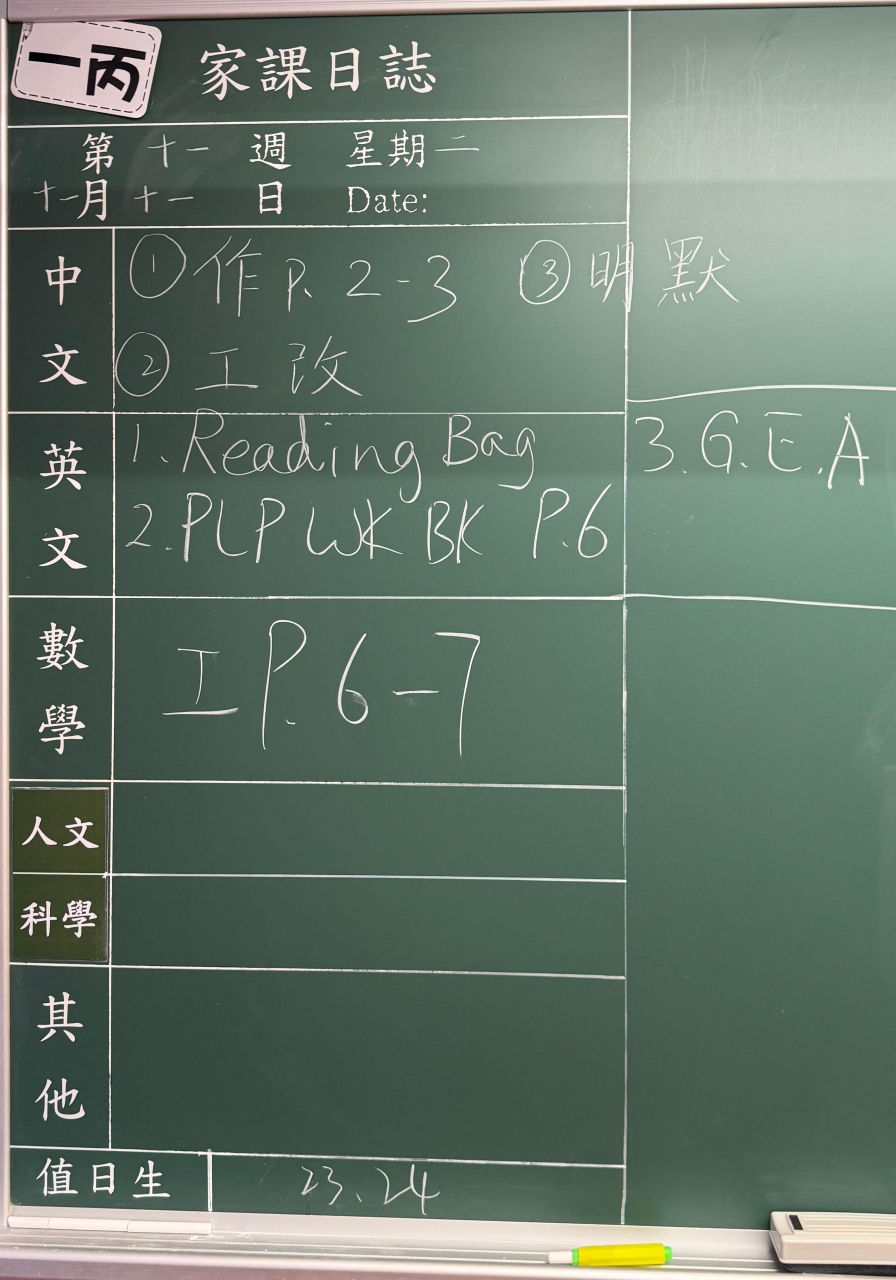 一丙
家課日誌
第 十一 週 星期二
十一月 十一 日 Date:
中文
① 作 P. 2-3 ③ 明 默
② 工 改
英文
1. Reading Bag
3. G.E.A
2. PLP WK BK P.6
數學
工 P. 6-7
人文
科學
其他
值日生 23、24